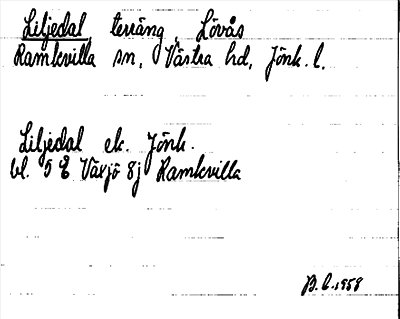 Liljedal, terräng, Lövås
Ramkvilla sn, Västra hd, Jönk. l.
Liljedal ek. Jönk.
bl. 5 E Växjö 8j Ramkvilla
B. L. 1958